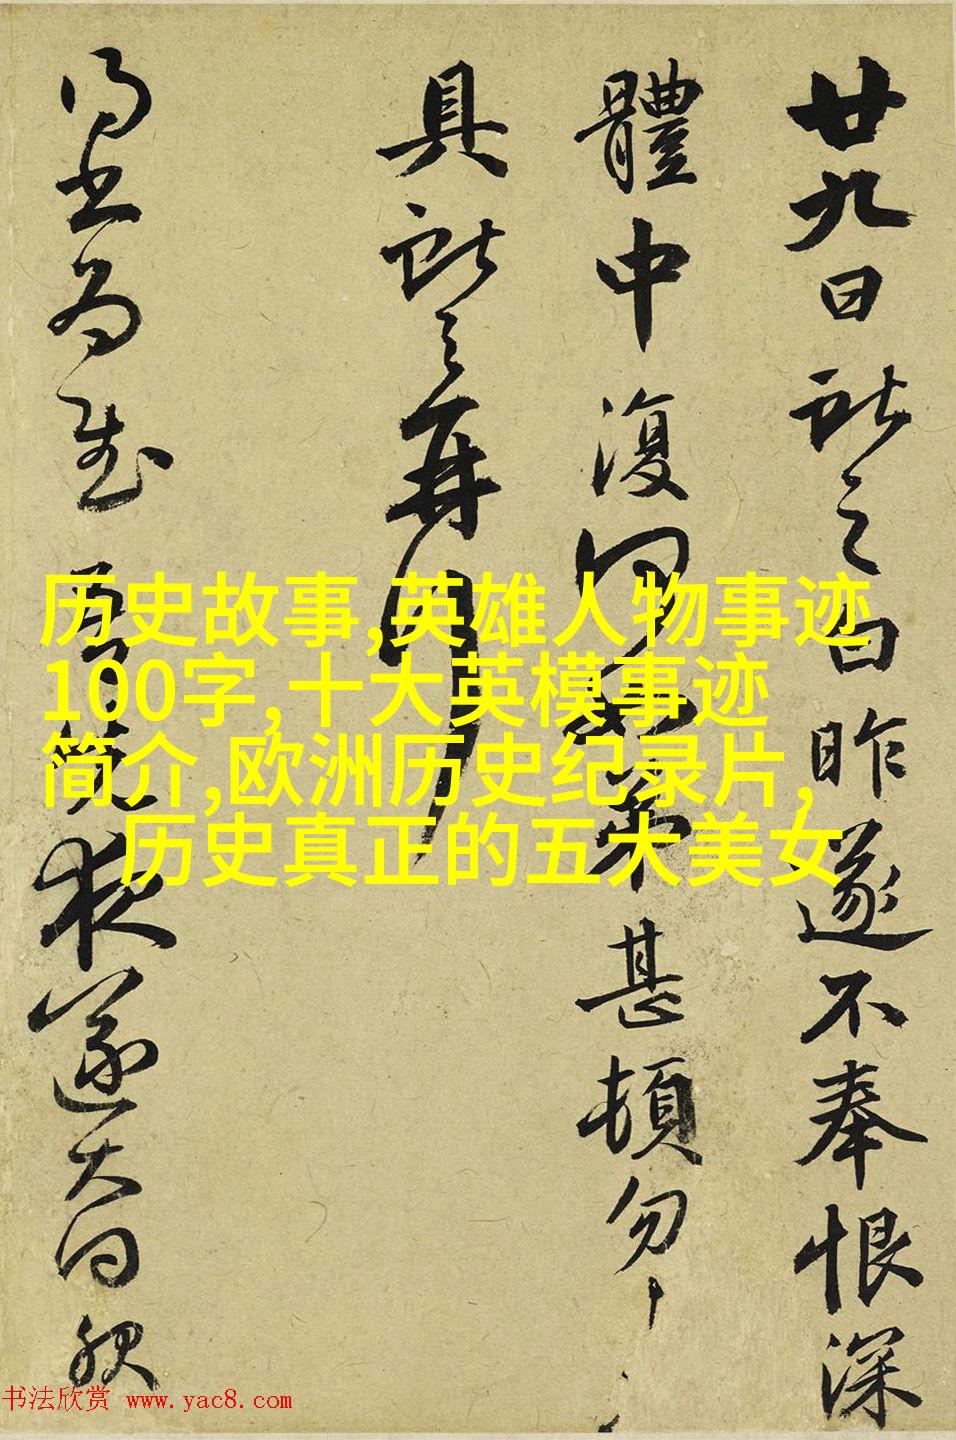 廿九日獻之白昨遂不奉恨深
體中復何如弟甚頓勿勿
具獻之再拜
得書為慰吾夜遂大
历史故事,英雄人物事迹
100字,十大英模事迹
简介,欧洲历史纪录片,
历史真正的五大美女
书法欣赏 www.yac8.com